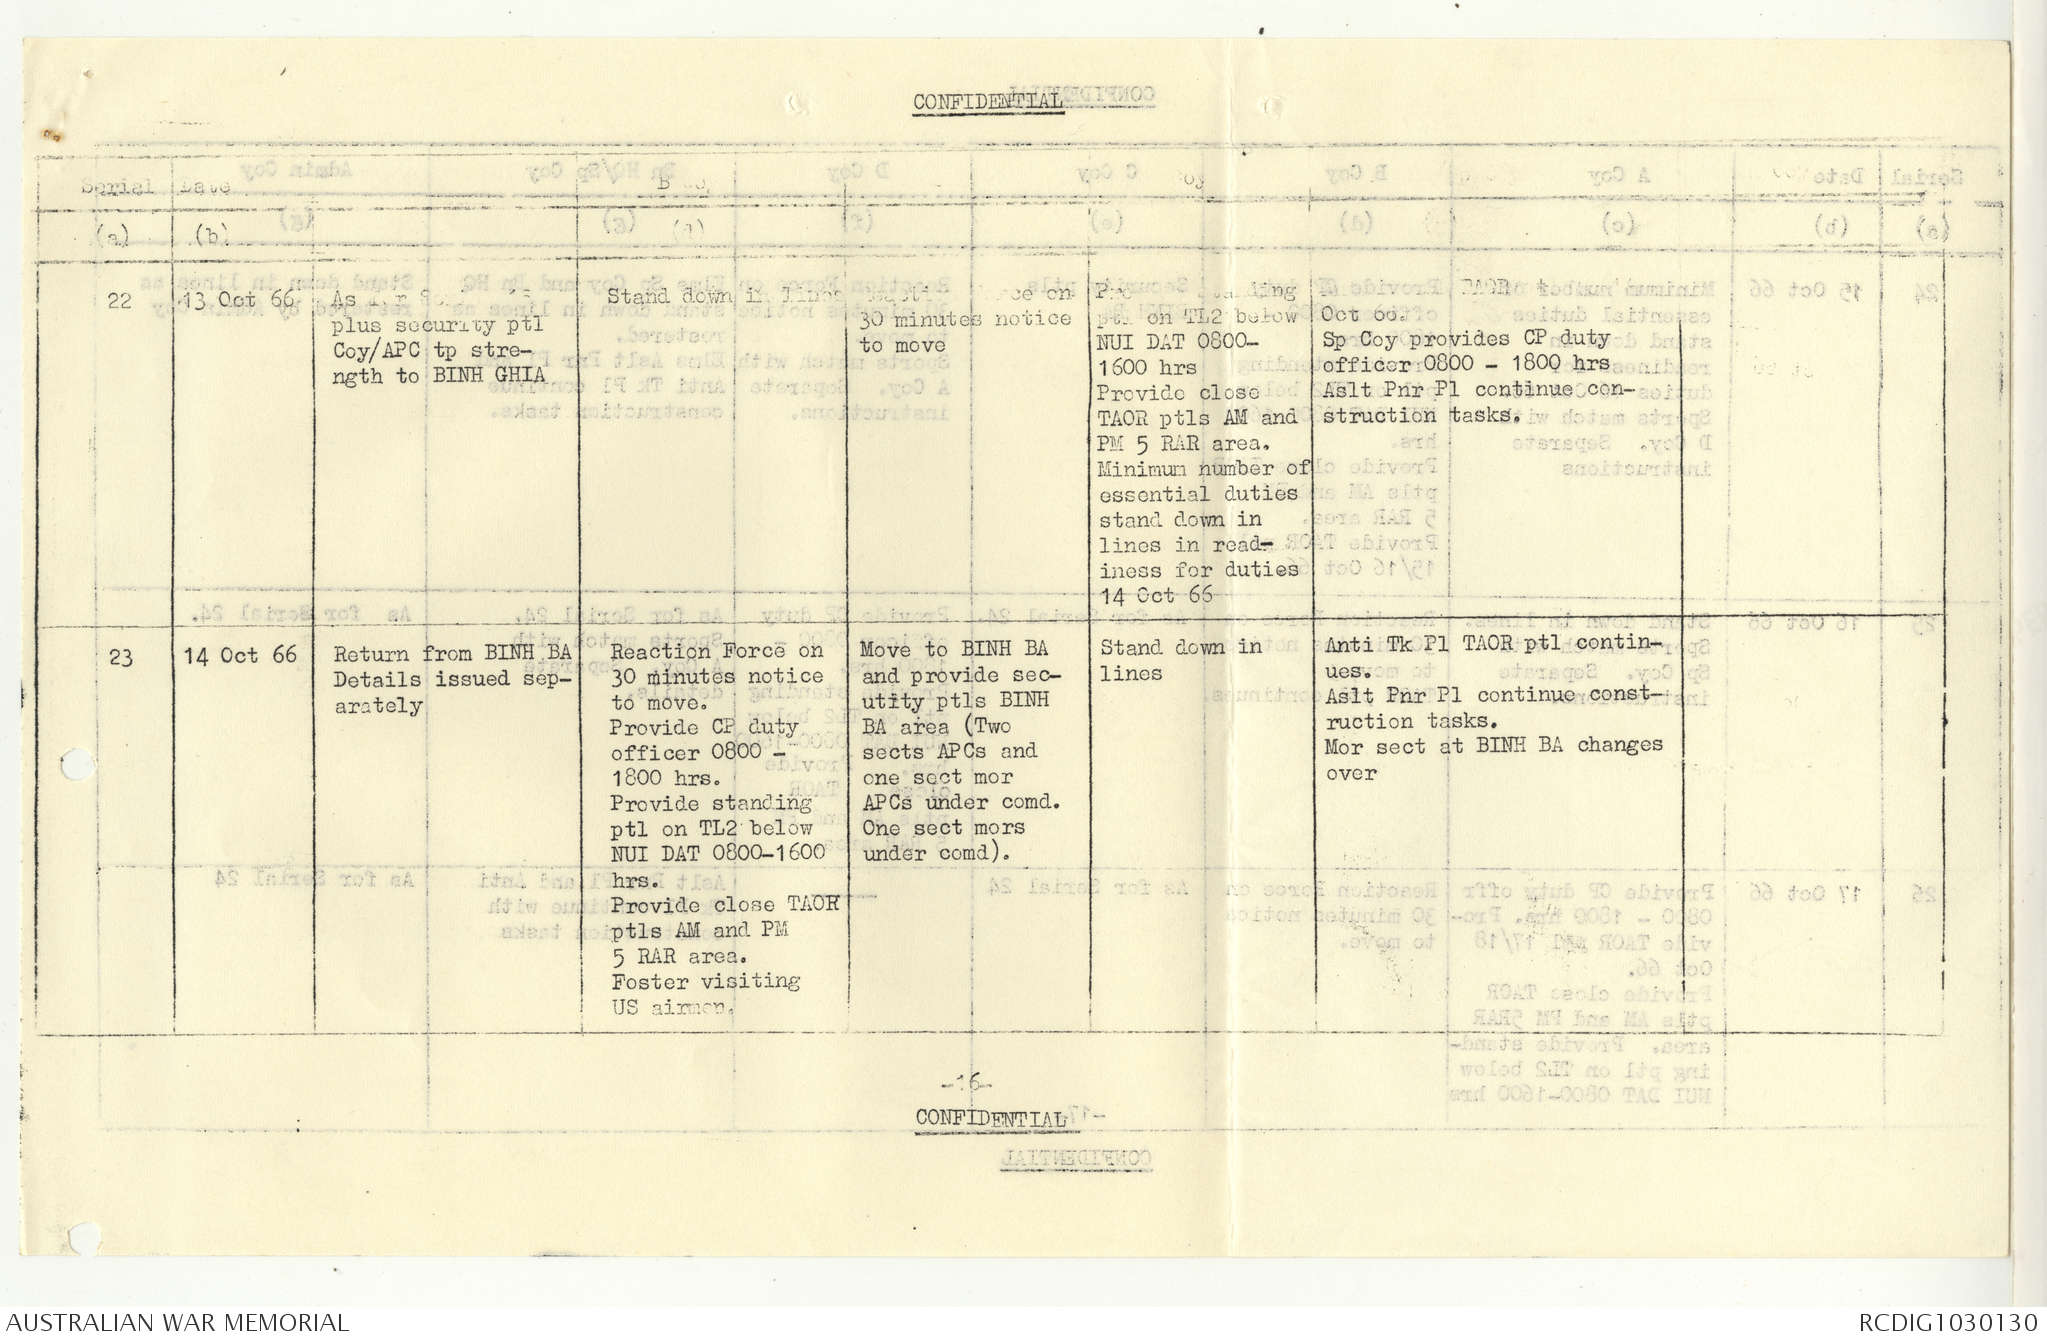 CONFIDENTIAL
Serial Date
(a) (b) (d)
22
13 Oct 66
As
plus security ptl
Coy/APC tp stre-
ngth to BINH GHIA
Stand down in lines
on
30 minutes notice
to move
ptl on TL2 below
NUI DAT 0800-
1600 hrs
Provide close
TAOR ptls AM and
PM 5 RAR area.
Minimum number of
essential duties
stand down in
lines in read-
iness for duties
14 Oct 66
TAOR
Oct 66.
Sp Coy provides CP duty
officer 0800 - 1800 hrs
Aslt Pnr Pl continue con-
struction tasks.
23
14 Oct 66
Return from BINH BA
Details issued sep-
arately
Reaction Force on
30 minutes notice
to move.
Provide CP duty
officer 0800 -
1800 hrs.
Provide standing
ptl on TL2 below
NUI DAT 0800-1600
hrs.
Provide close TAOR
ptls AM and PM
5 RAR area.
Foster visiting
US airmen.
Move to BINH BA
and provide sec-
utity ptls BINH
BA area (Two
sects APCs and
one sect mor
APCs under comd.
One sect mors
under comd).
Stand down in
lines
Anti Tk Pl TAOR ptl contin-
ues.
Aslt Pnr Pl continue const-
ruction tasks.
Mor sect at BINH BA changes
over
-16-
CONFIDENTIAL
AUSTRALIAN WAR MEMORIAL
RCDIG1030130